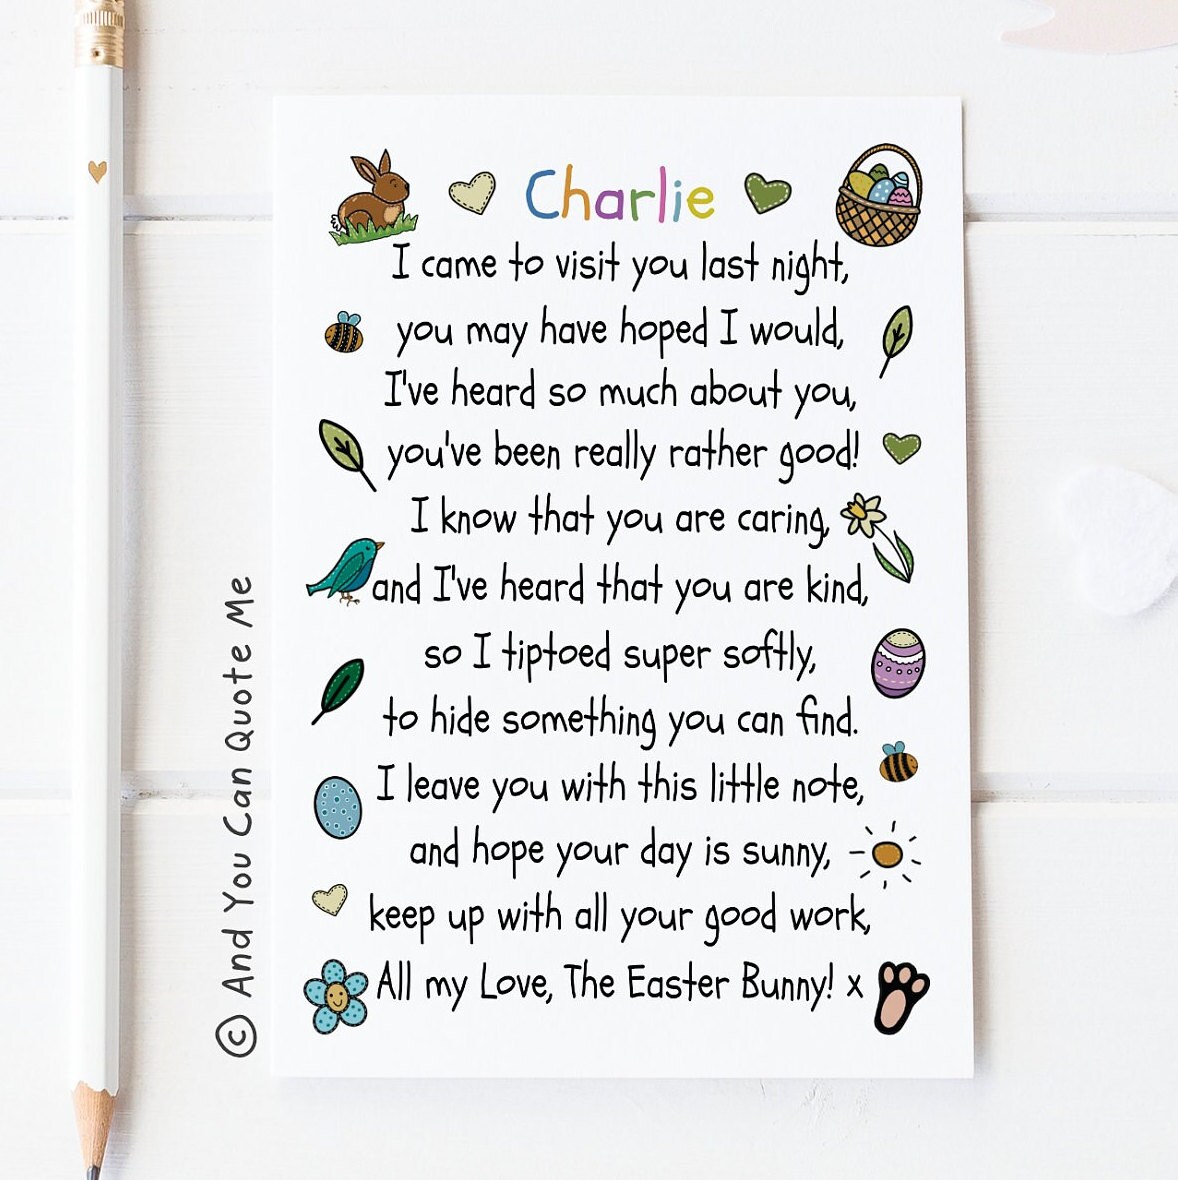 Charlie
I came to visit you last night,
you may have hoped I would,
I've heard so much about you,
you've been really rather good!
I know that you are caring,
and I've heard that you are kind,
so I tiptoed super softly,
to hide something you can find.
I leave you with this little note,
and hope your day is sunny,
keep up with all your good work,
All my Love, The Easter Bunny! x
© And You Can Quote Me